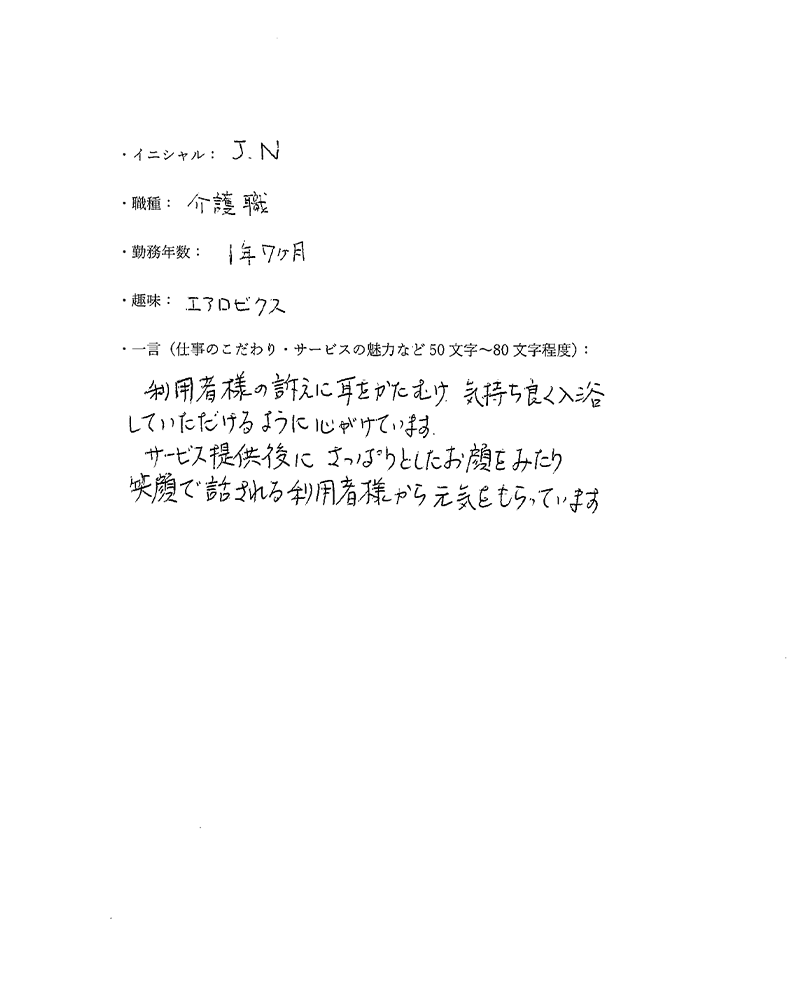 ・イニシャル： J.N
・職種： 介護職
・勤務年数： 1年7ヶ月
・趣味： エアロビクス
・一言（仕事のこだわり・サービスの魅力など 50 文字～80 文字程度）：
利用者様の訴えに耳をかたむけ 気持ち良く入浴
していただけるように心がけています.
サービス提供後に さっぱりとしたお顔をみたり
笑顔で話される利用者様から元気をもらっています